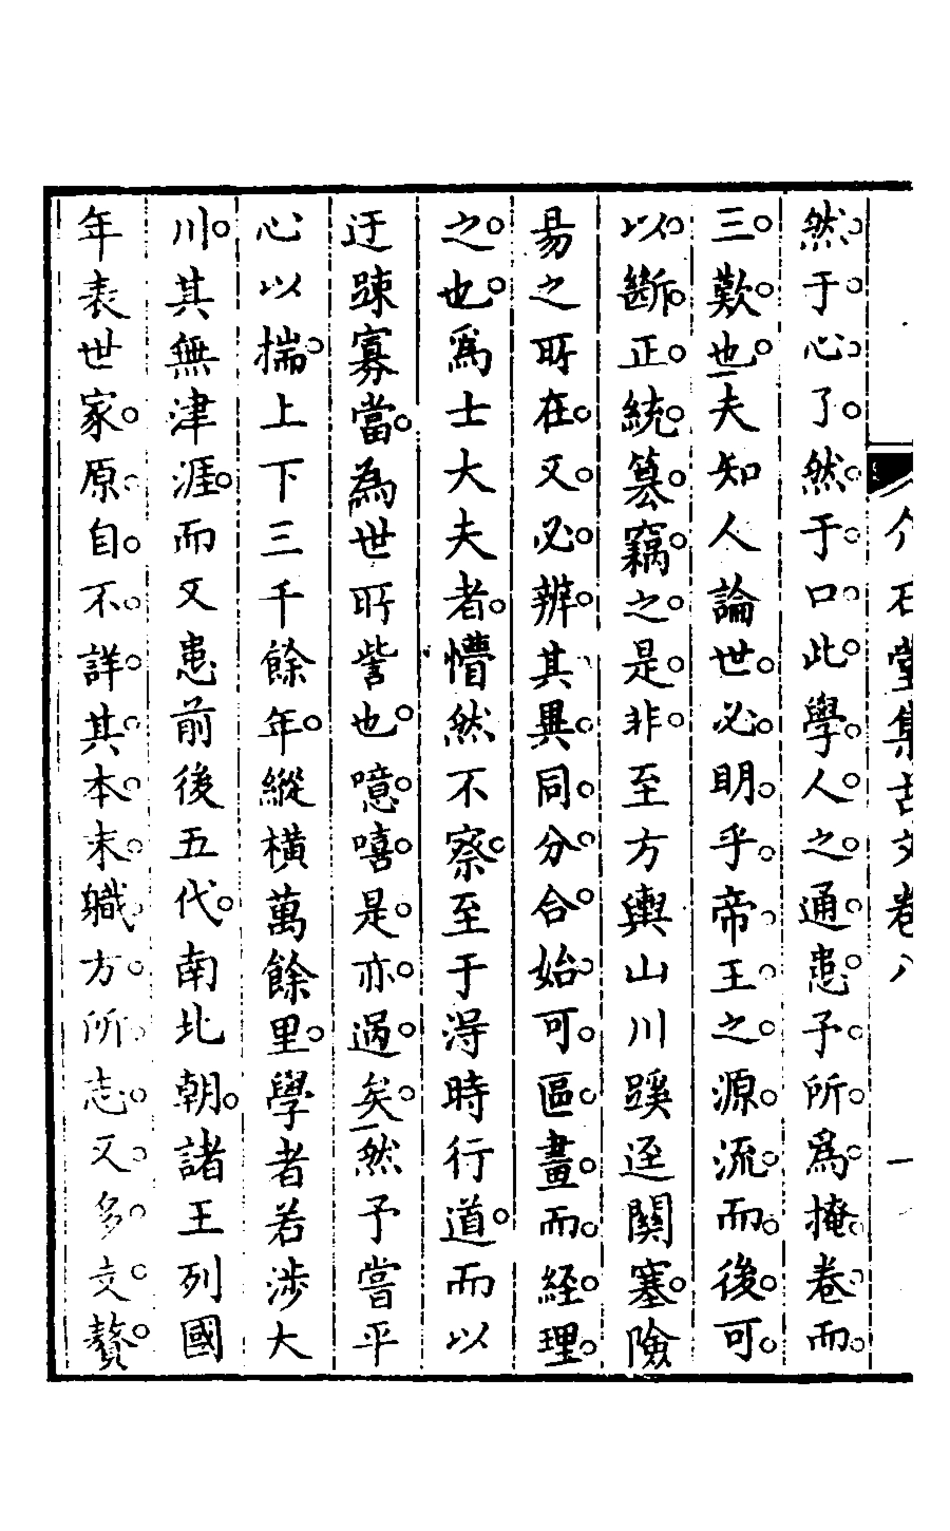 介石堂集古文卷八
一
然于心了然于口此學人之通患予所爲掩卷而
三歎也夫知人論世必明乎帝王之源流而後可
以斷正統篡竊之是非至方輿山川蹊逕關塞險
易之所在又必辨其異同分合始可區畫而經理
之也爲士大夫者懵然不察至于得時行道而以
迂踈寡當為世所訾也噫嘻是亦過矣然予嘗平
心以揣上下三千餘年縱橫萬餘里學者若涉大
川其無津涯而又患前後五代南北朝諸王列國
年表世家原自不詳其本末職方所志又多文贅